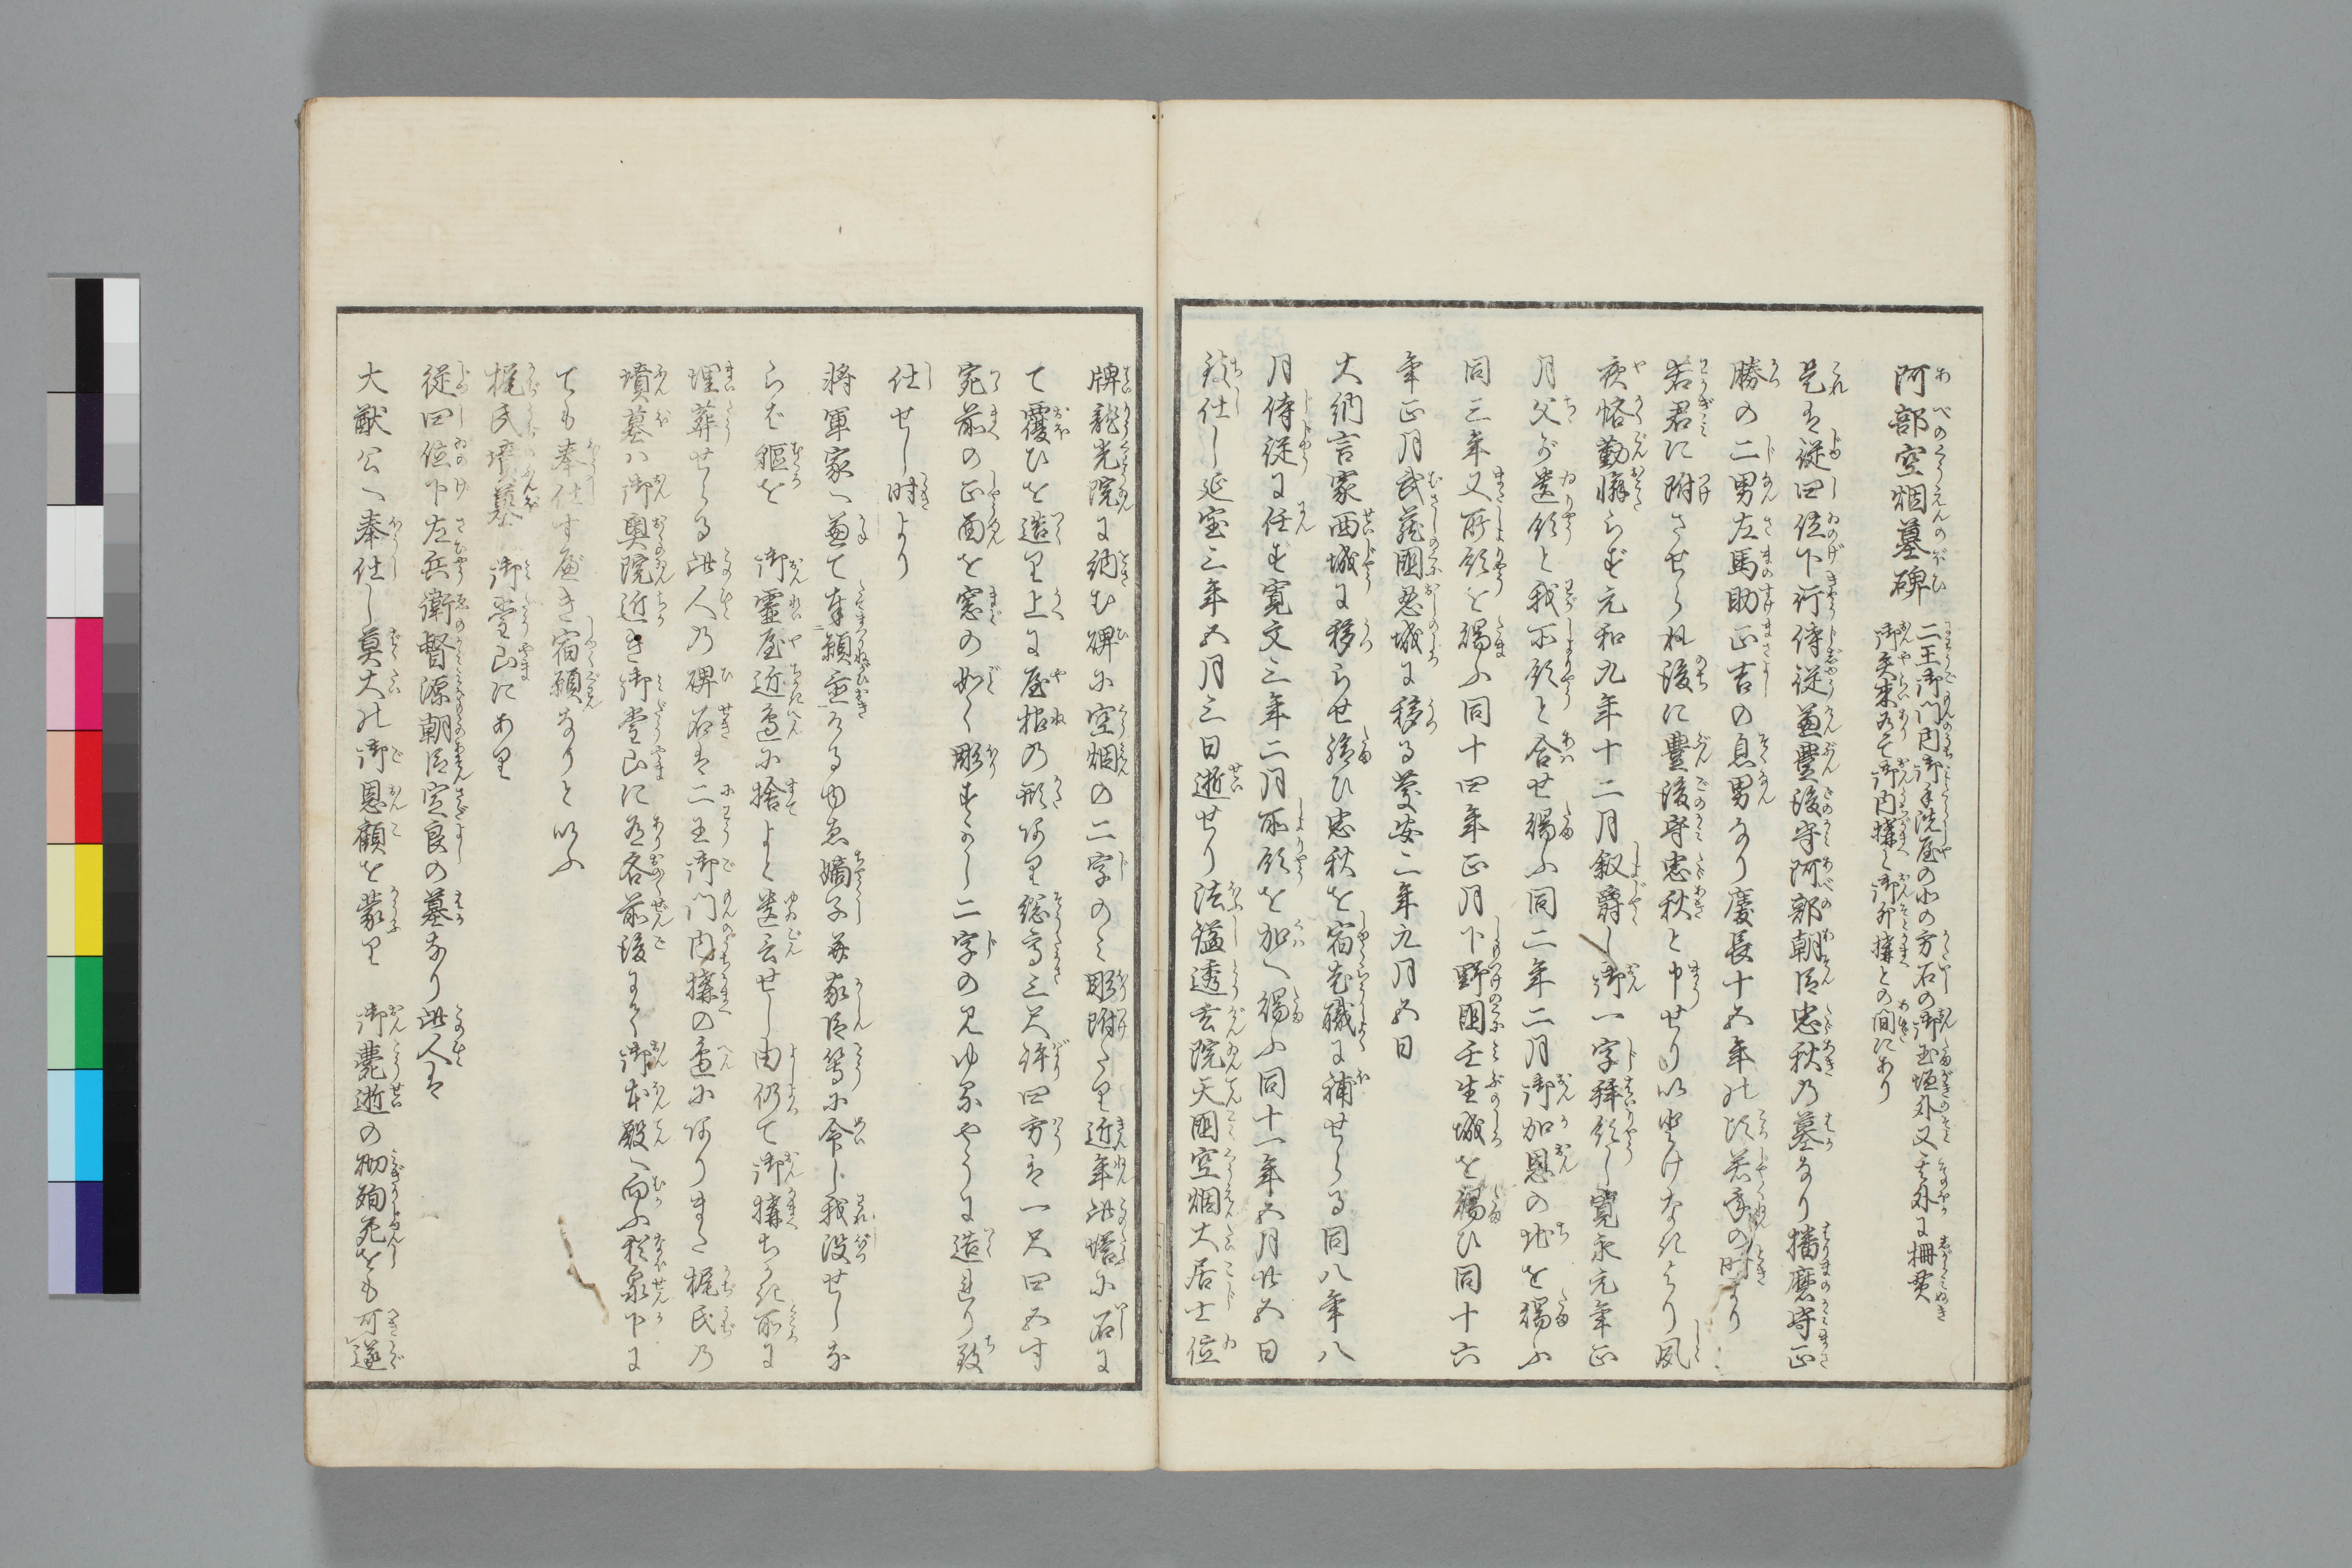 阿部空烟墓碑
二王御門内御手洗屋の北の方石の御玉垣外又其外に柵貫
御矢来有て御内構と御外構との間にあり
是は従四位下行侍従兼豊後守阿部朝臣忠秋の墓なり播磨守正
勝の二男左馬助正吉の息男なり慶長十五年の比若年の時より
若君に附させられ後に豊後守忠秋と申せり以来けなげより夙
夜恪勤懈らず元和九年十二月叙爵し御一字拝領し寛永元年正
月父が遺領と我所領と合せ賜ふ同二年二月御加恩の地を賜ふ
同三年又所領を賜ふ同十四年正月下野国壬生城を賜ひ同十六
年正月武蔵国忍城に移る慶安二年九月五日
大納言家西城に移らせ給ひ忠秋を宿老職に補せらる同八年八
月侍従に任ず寛文三年二月所領を加へ賜ふ同十一年五月廿五日
致仕し延宝三年五月三日逝せり法謚透玄院天国空烟大居士位
牌龍光院に納む碑に空烟の二字のミ彫附たり近年此塔に石に
て覆ひを造り上に屋根の形あり総高三尺許四方は一尺四五寸
宛前の正面を窓の如く彫すかし二字の見ゆるやうに造れり致
仕せし時より
将軍家へ兼て奉願置けるゆゑ嫡子并家臣等に命じ我没せしな
らば軀を　御霊屋近辺に捨よと遺言せし由仍て御構ちかき所に
埋葬せらる此人の碑石は二王御門内構の辺にありまた梶氏の
墳墓ハ御奥院近き御堂山に有各前後にて御本殿へ向ふ黄泉下に
ても奉仕す可き宿願なりと以ふ
梶氏墳墓　御堂山にあり
従四位下左兵衛督源朝臣定良の墓なり此人は
大猷公へ奉仕し莫大の御恩顧を蒙り　御薨逝の砌殉死をも可遂